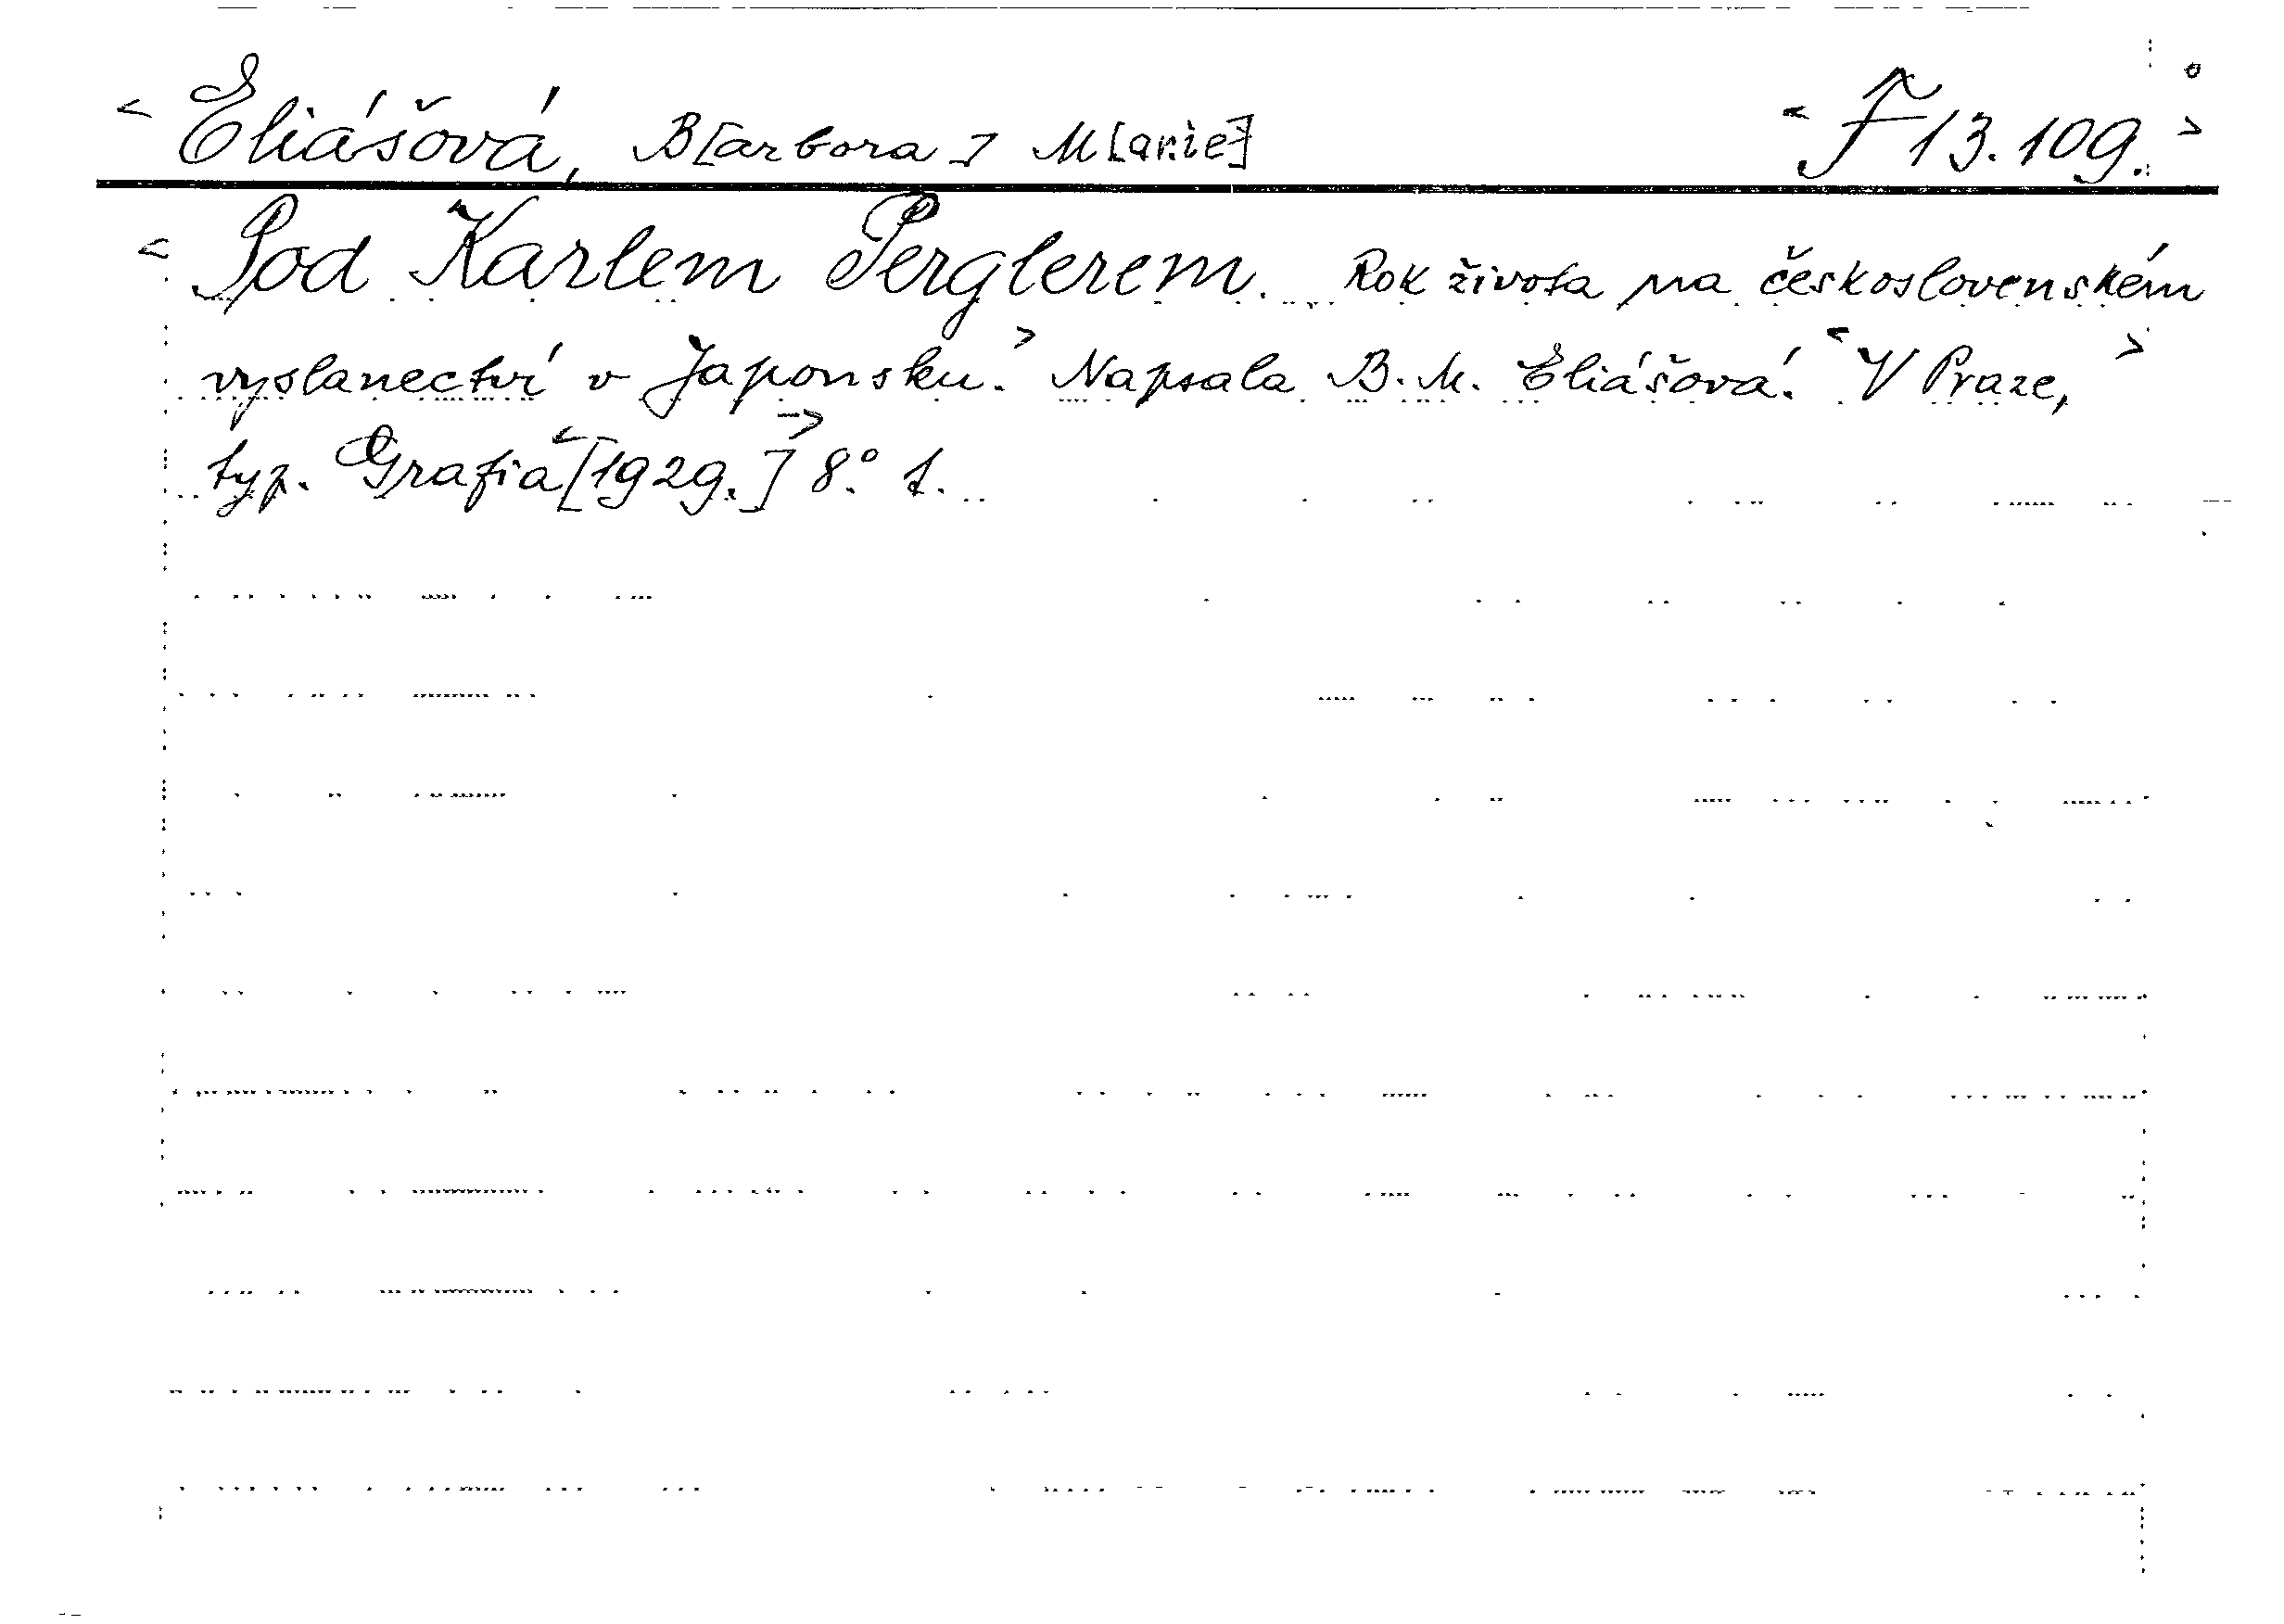 < Eliášová, B[arbora] M[arie] < F 13.109. >
< Pod Karlem Perglerem. Rok života na československém
vyslanectví v Japonsku. > Napsala B. M. Eliášová. < V Praze, >
typ. Grafia < [1929.] > 8.° 1.